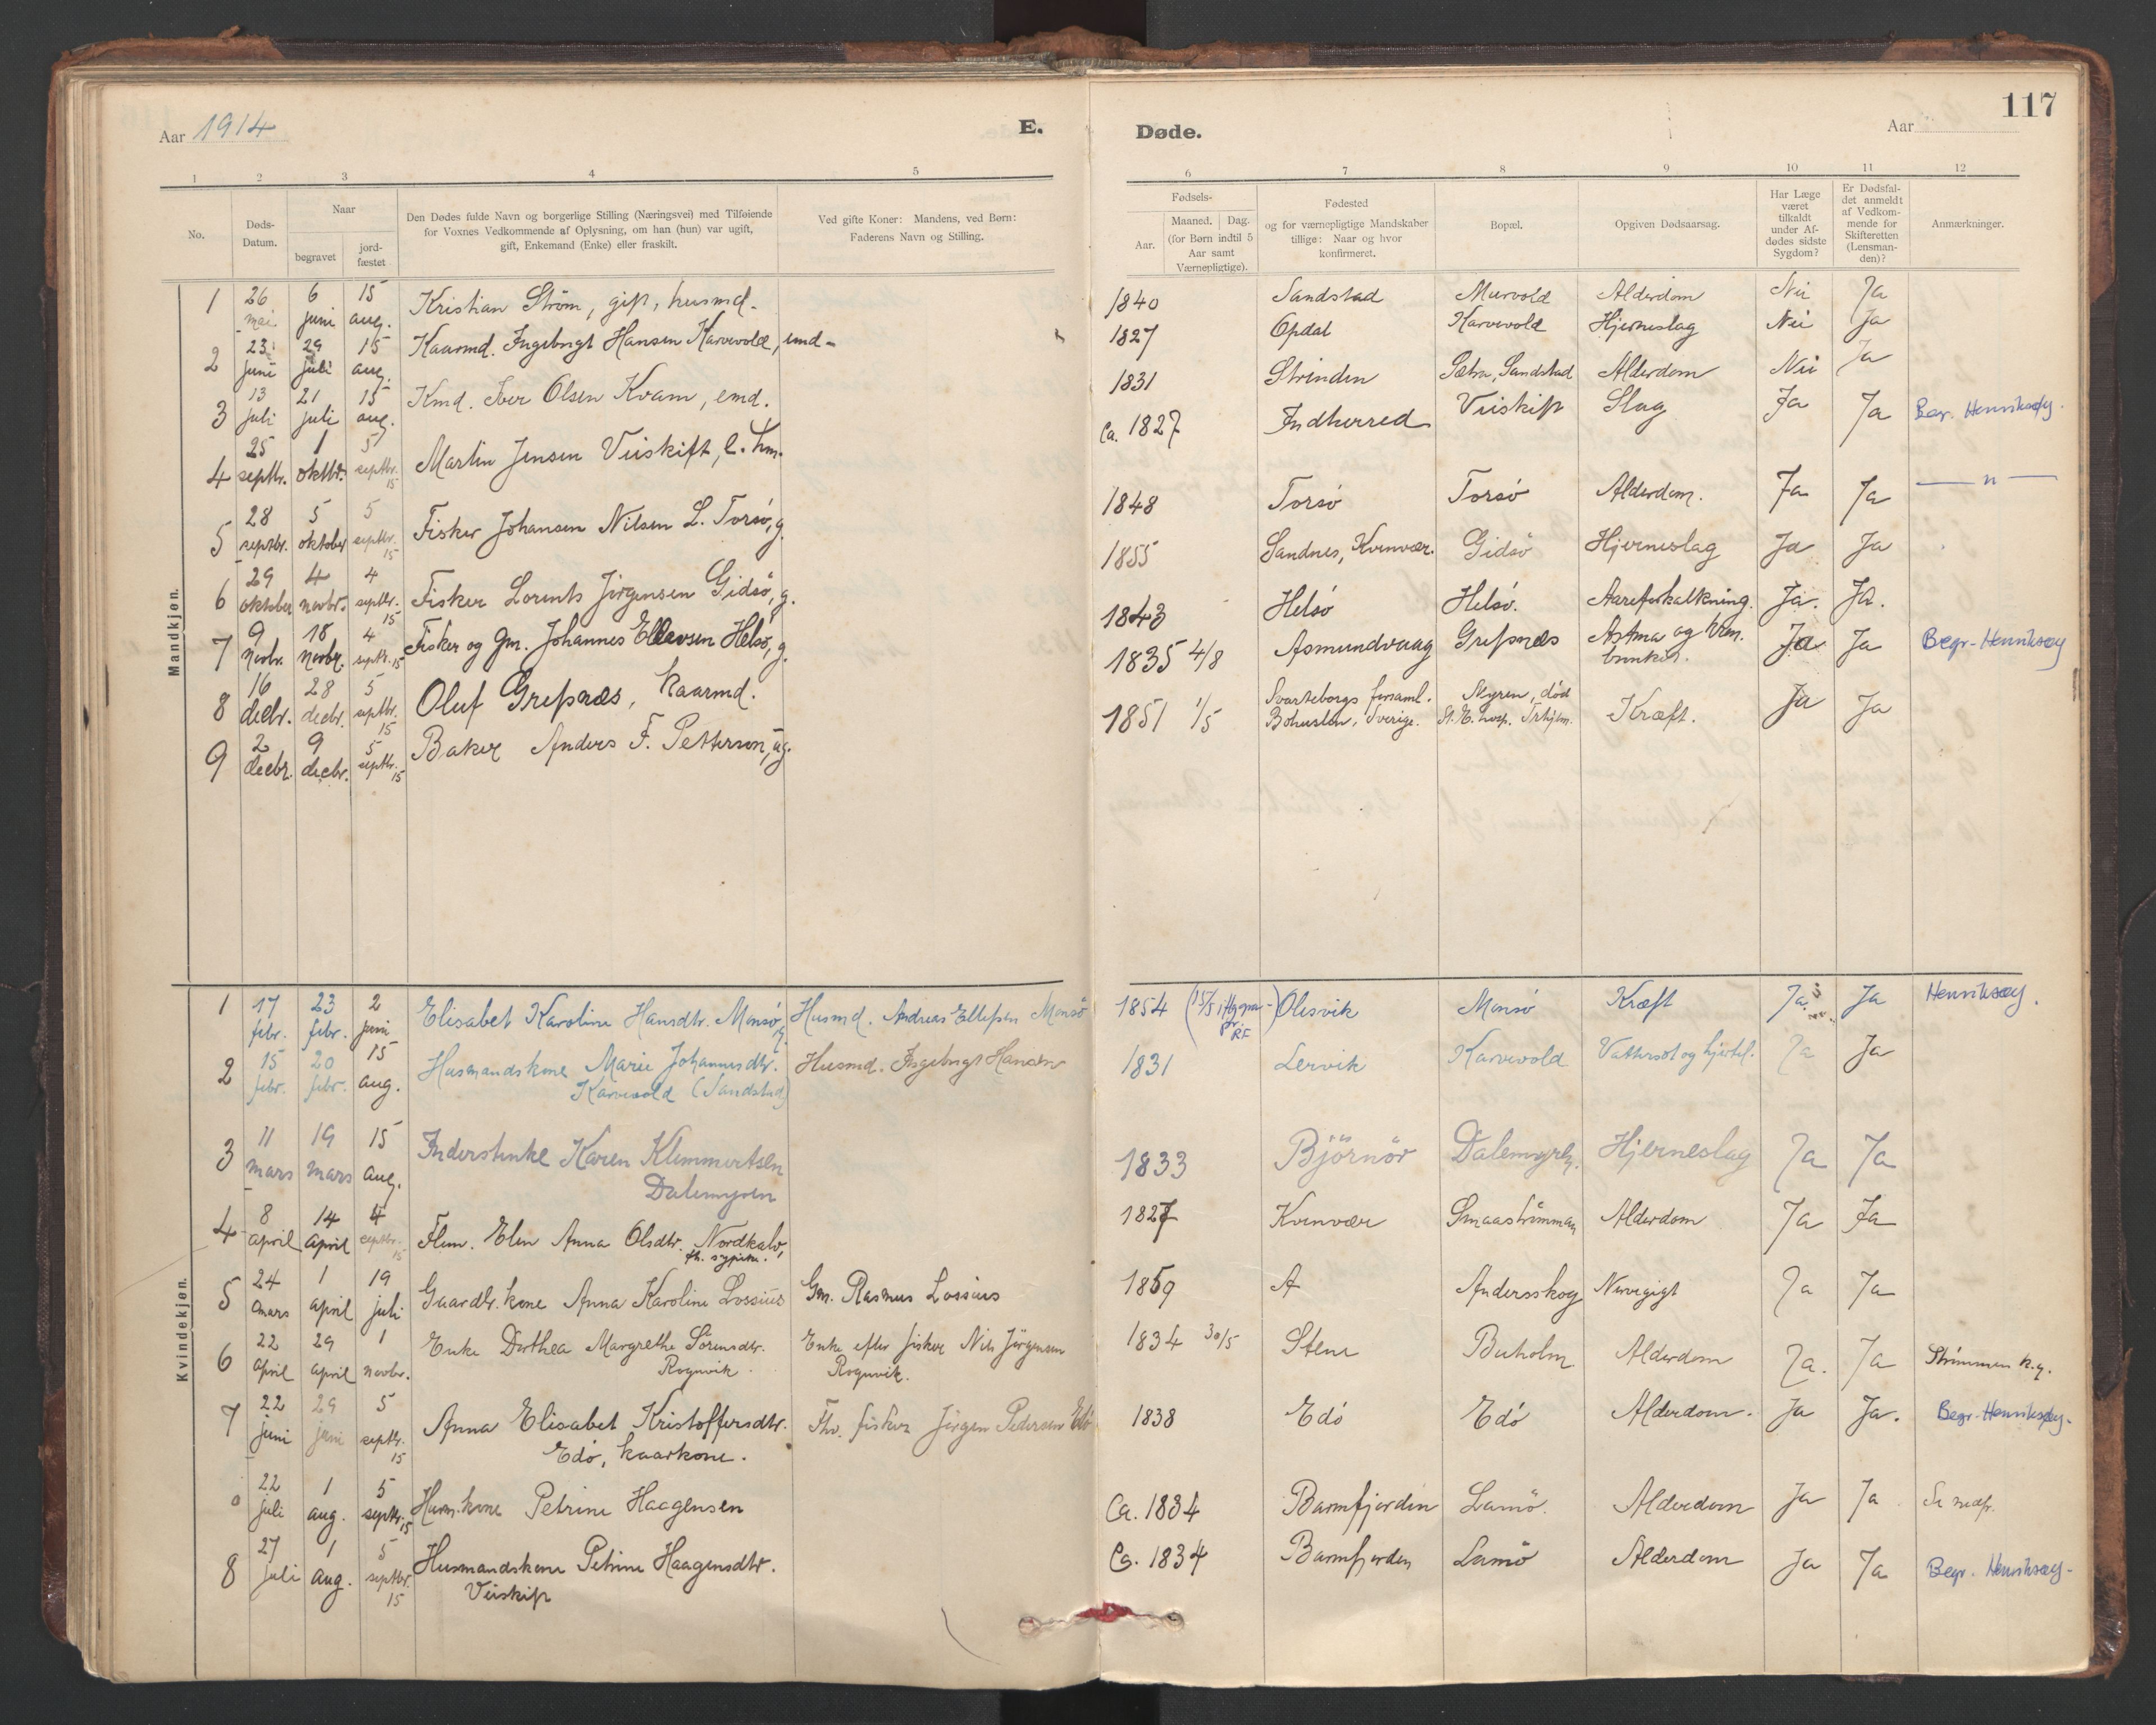 117
Aar 1914
E.
Døde.
Aar
1 2 3 4 5 6 7 8 9 10 11 12
No.
Døds-
Datum.
Naar
begravet
jord-
fæstet
Den Dødes fulde Navn og borgerlige Stilling (Næringsvei) med Tilføiende
for Voxnes Vedkommende af Oplysning, om han (hun) var ugift,
gift, Enkemand (Enke) eller fraskilt.
Ved gifte Koner: Mandens, ved Børn:
Faderens Navn og Stilling.
Fødsels-
Aar.
Maaned. Dag.
(for Børn indtil 5
Aar samt
Værnepligtige).
Fødested
og for værnepligtige Mandskaber
tillige: Naar og hvor
konfirmeret.
Bopæl.
Opgiven Dødsaarsag.
Har Læge
været
tilkaldt
under Af-
dødes sidste
Sygdom?
Er Dødsfal-
det anmeldt
af Vedkom-
mende for
Skifteretten
(Lensman-
den)?
Anmærkninger.
Mandkjøn.
1 26 mai 6 juni 15 aug. Kristian Strøm, gift, husmd. 1840 Sandstad Murvold Alderdom Nei Ja
2 23 juni 29 juli 15 aug. Kaarmd. Ingebrigt Hansen Karvevold, emd. 1827 Opdal Karvevold Hjerneslag Nei Ja
3 13 juli 21 juli 15 aug. Kmd. Iver Olsen Kvam, emd. 1831 Strinden Sætra, Sandstad Alderdom Nei Ja
4 25 septbr. 1 oktbr. 5 septbr. 15 Martin Jensen Veiskift, e. hm. Ca. 1827 Indherred Veiskift Slag Ja Ja Begr. Henriksøy.
5 28 septbr. 5 oktober 5 septbr. 15 Fisker Johansen Nilsen L. Torsø, g. 1848 Torsø Torsø Alderdom. Ja Ja — " —
6 29 oktober 4 novbr. 4 septbr. 15 Fisker Lorents Jörgensen Gidsö, g. 1855 Sandnes, Kvenvær. Gidsö Hjerneslag Ja Ja
7 9 novbr. 18 novbr. 4 septbr. 15 Fisker og Gm. Johannes Ellevsen Helsø, g. 1843 Helsø Helsø. Aareforkalkning. Ja. Ja.
8 16 decbr. 28 decbr. 5 septbr. 15 Oluf Grefsnæs, kaarmd. 1835 4/8 Asmundvaag Grefsnæs Astma og Ja Ja Begr. Henriksøy
9 2 decbr. 9 decbr. 5 septbr. 15 Baker Anders F. Petterson, ug. 1851 1/5 Svarteborgs forsaml.
Bohuslen, Sverige. Myren, død
St. E. hosp. Trhjem. Kræft. Ja Ja
Kvindekjøn.
1 17 febr. 23 febr. 2 juni Elisabet Karoline Hansdtr. Monsø, Husmd. Andreas Ellefsen Monsø 1854 Olesvik Monsø Kræft Ja Ja Henriksøy.
2 15 febr. 20 febr. 15 aug. Husmandskone Marie Johannesdtr.
Karvevold (Sandstad) Husmd. Ingebrigt Hansen 1831 Lervik Karvevold Vattersot og hjertef. Ja Ja
3 11 mars 19 mars 15 aug. Inderstenke Karen Klemmertsen
Dalemyren 1833 Björnör Dalemyren. Hjerneslag Ja Ja
4 8 april 14 april 4 septbr. 15 Flm. Elen Anna Olsdtr. Nordkalv,
1827 Kvenvær Smaastrømman Alderdom Ja Ja
5 24 mars 1 april 19 juli Gaardbr. kone Anna Karoline Lossius Gm. Rasmus Lossius 1859 A Andersskog Nervegigt Ja Ja
6 22 april 29 april 1 novbr. Enke Dorthea Margrethe Sørensdtr.
Rognvik. Enke efter fisker Nils Jörgensen
Rognvik. 1834 30/5 Stene Buholm Alderdom Ja. Ja Strömmen k.g.
7 22 juni 29 juni 5 septbr. 15 Anna Elisabet Kristoffersdtr.
Edø, kaarkone. Fhv. fisker Jörgen Pedersen Edø 1838 Edø Edø Alderdom. Ja Ja. Begr. Henriksøy.
0 22 juli 1 aug. 5 septbr. 15 Husm. kone Petrine Haagensen Ca. 1834 Barmfjorden Lamö. Alderdom Ja Ja Se nedf.
8 27 juli 1 aug. 5 septbr. 15 Husmandskone Petrine Haagensdtr.
Veiskift Ca. 1834 Barmfjorden Lamö Alderdom Ja Ja Begr. Henriksøy.